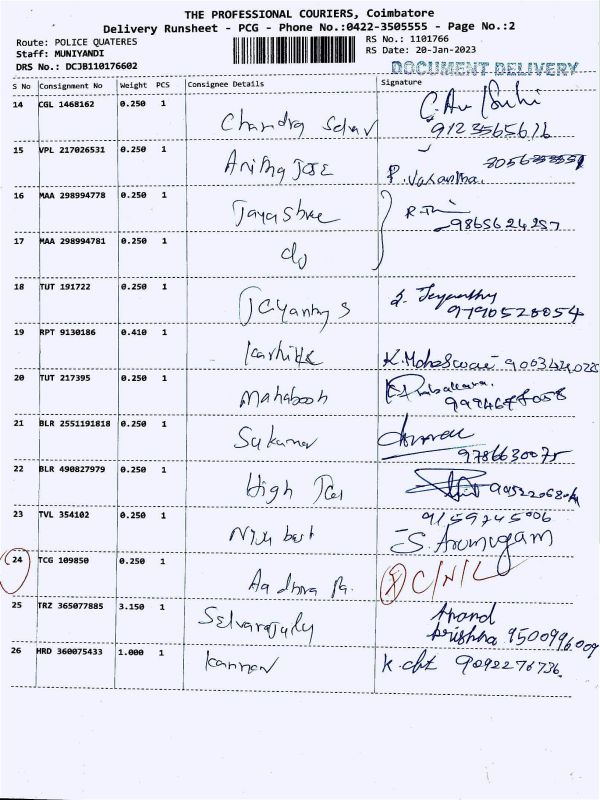 THE PROFESSIONAL COURIERS, Coimbatore
Delivery Runsheet - PCG - Phone No.:0422-3505555 - Page No.:2
Route: POLICE QUATERES RS No.: 1101766
Staff: MUNIYANDI RS Date: 20-Jan-2023
DRS No.: DCJB110176602 DOCUMENT DELIVERY
S No Consignment No Weight PCS Consignee Details Signature
14 CGL 1468162 0.250 1
Chandra Selvar 9123565616
15 VPL 217026531 0.250 1
Anitha Jose P. Vasantha.
16 MAA 298994778 0.250 1
Jayashree 9865624257
17 MAA 298994781 0.250 1
do
18 TUT 191722 0.250 1
Jayanthy S J. Jeyanthy
9790528054
19 RPT 9130186 0.410 1
Karhikk K. Maheswari
20 TUT 217395 0.250 1
Mahaboob
21 BLR 2551191818 0.250 1
Sukumar 9786630075
22 BLR 490827979 0.250 1
High
23 TVL 354102 0.250 1 9159245006
best S. Arumugam
24 TCG 109850 0.250 1
Aadhira C/N/L
25 TRZ 365077885 3.150 1 Anand
Selvarajuly Krishna 9500996009
26 HRD 360075433 1.000 1
Kannan K. 9092276736